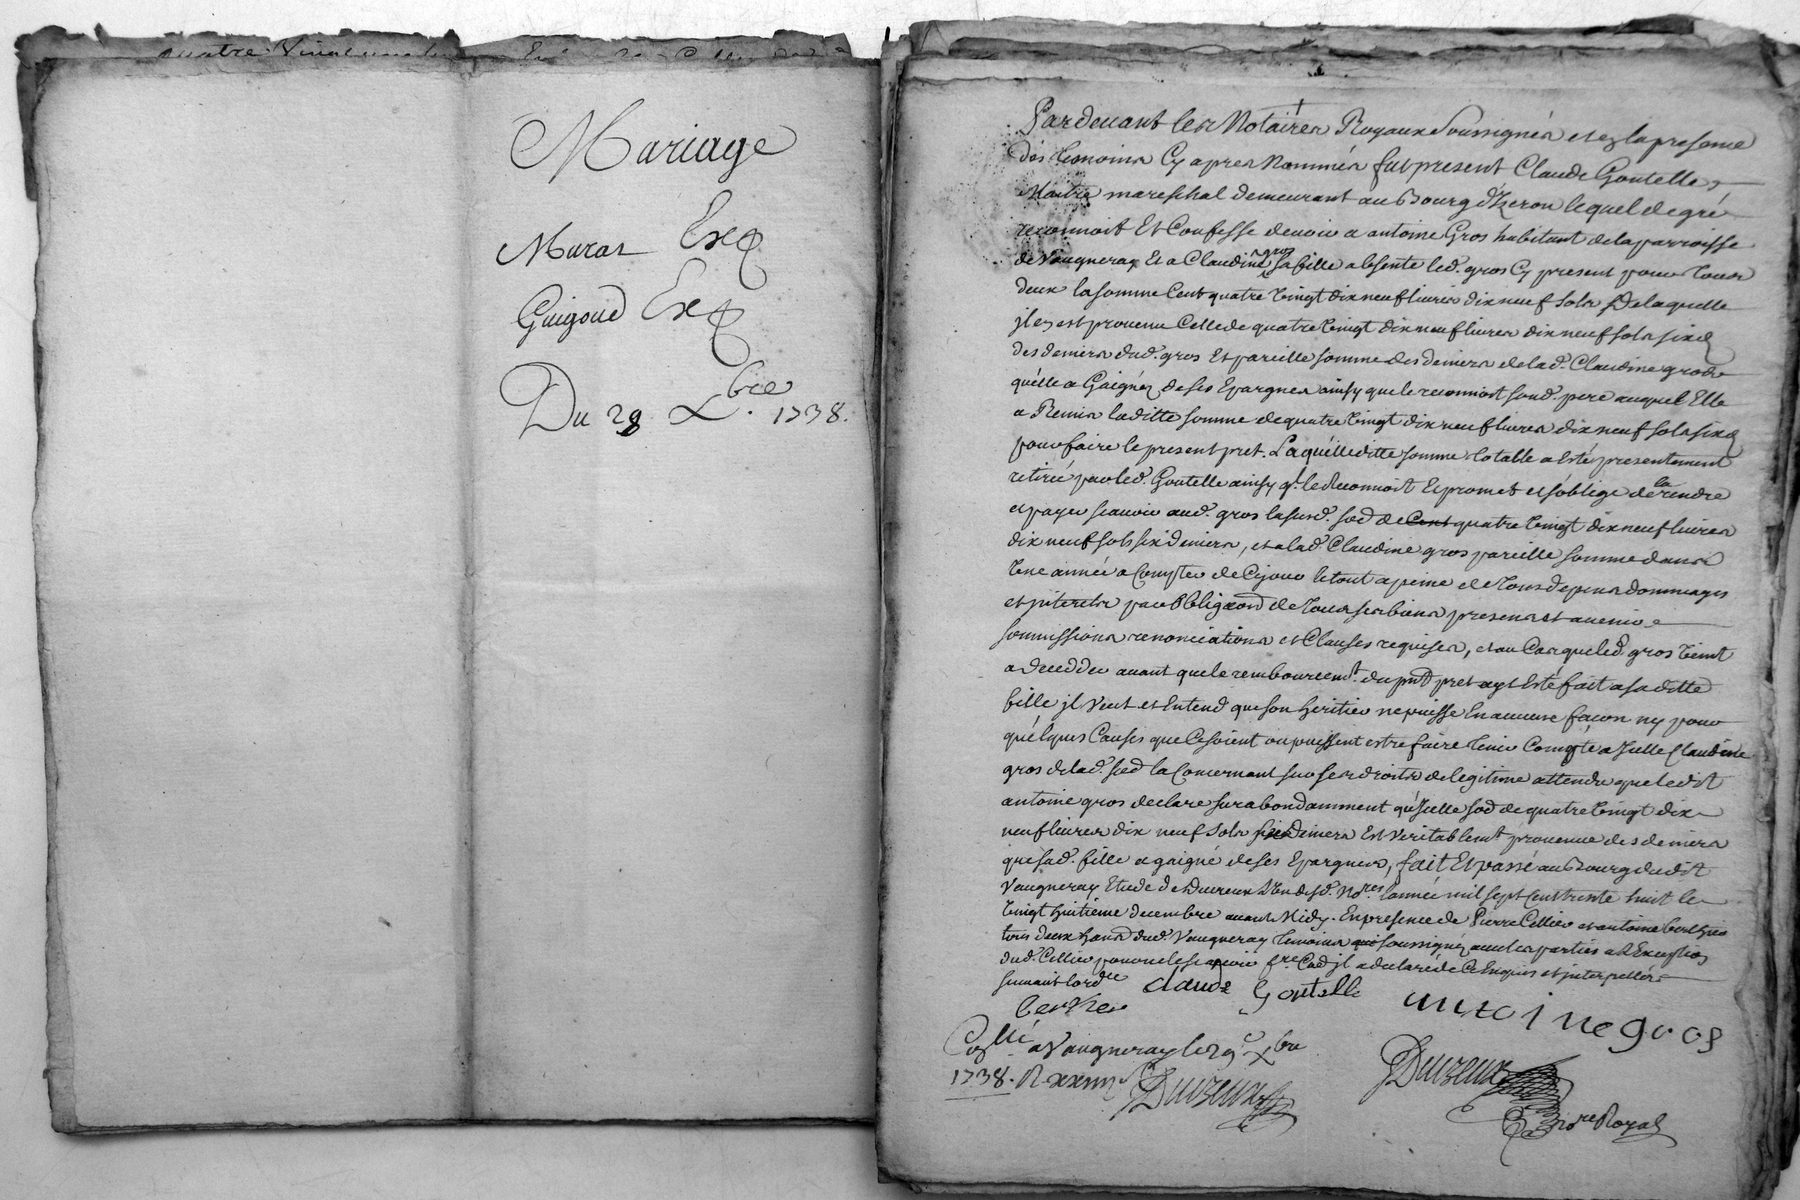 Mariage
Muras Exp
Guigoud Exp
Du 28 Xbre 1738.
Pardevant les Notaires Royaux Soussignés et en la presence
des temoins Cy apres Nommés fut present Claude Goutelle
Maitre mareschal demeurant au Bourg d'Izeron lequel de gré
reconnoit Et Confesse devoir a antoine Gros habitant de la parroisse
de Vaugneray Et a Claudine gros sa fille absente led. gros Cy present pour tous
deux la somme Cent quatre vingt dix neuf livres dix neuf sols De laquelle
il en est provenu Celle de quatre vingt dix neuf livres dix neuf sols six d
des deniers dud. gros Et pareille somme des deniers de lad. Claudine gros
qu'elle a Gaignéz de ses Epargnes ainsy que le reconnoit sond. pere auquel Elle
a Remis laditte somme de quatre vingt dix neuf livres dix neuf sols six d
pour faire le present pret. Laquelleditte somme totalle a Esté presentement
retirée par led. Goutelle ainsy q. le Reconnoit Et promet et s'oblige de la rendre
et payer scavoir aud. gros la susd. so͂e de Cent quatre vingt dix neuf livres
dix neuf sols six deniers, et a lad. Claudine gros pareille somme dans
Une année a Compter de Cejour le tout a peine de tous depens dommages
et interets par obliga͂on de tous ses biens presens et avenir
soumissions renonciations et Clauses requises, et au Cas que led. gros vint
a decedder avant que le remboursemt. du pnt pret ayt Esté fait a saditte
fille il Veut et Entend que son heritier ne puisse En aucune façon ny pour
quélques Causes que Ce soient ou puissent estre faire tenir Compte a Icelle Claudine
gros de lad. so͂e la Concernant sur ses droits de legitime attendu que ledit
antoine gros declare surabondamment qu'Icelle so͂e de quatre vingt dix
neuf livres dix neuf sols six deniers Est veritablemt provenue des deniers
que sad. fille a gaigné de ses Epargnes, fait Et passé au Bourg dudit
Vaugneray Etude de Duvreux L'un desd. Nores l'année mil sept Cent trente huit le
vingt huitième decembre avant Midy. En presence de Pierre Cellier et antoine berthier
tous deux hants dud. Vaugneray temoins qui soussignez avec les parties a l'Exception
dud. Cellier pour ne le scavoir fre. Co͂e il a declaré de Ce Enquis et interpellés
suivant lordce
Claude Goutelle
berthier
antoinegros
Conllé a Vaugneray le 29e Xbre
1738. R xxiiii s